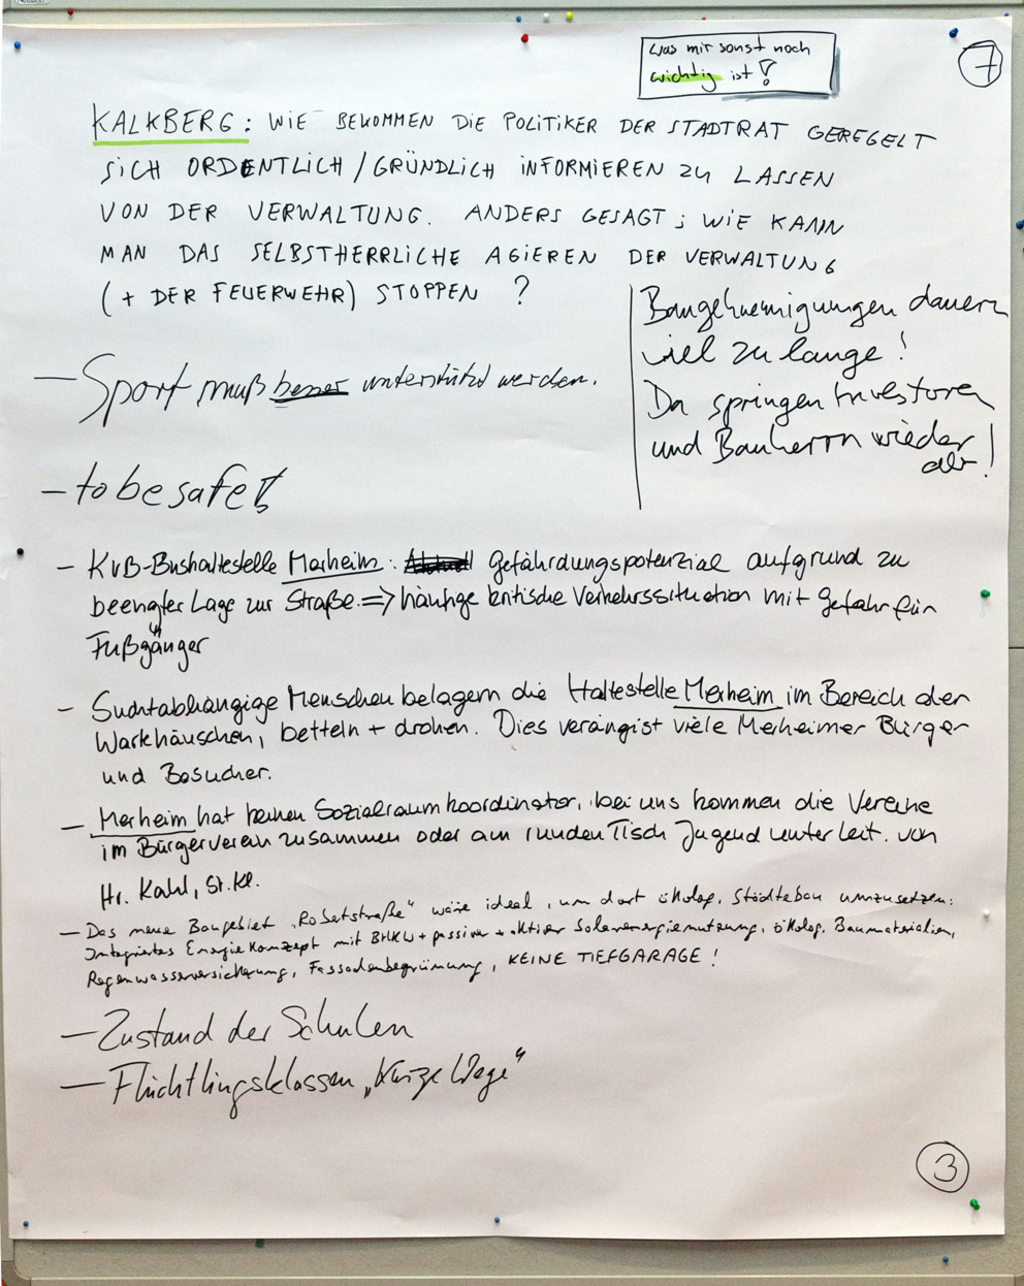 Was mir sonst noch
wichtig ist!
7
KALKBERG: WIE BEKOMMEN DIE POLITIKER DER STADTRAT GEREGELT
SICH ORDENTLICH / GRÜNDLICH INFORMIEREN ZU LASSEN
VON DER VERWALTUNG. ANDERS GESAGT; WIE KANN
MAN DAS SELBSTHERRLICHE AGIEREN DER VERWALTUNG
(+ DER FEUERWEHR) STOPPEN ?
Baugehnemigungen dauern
viel zu lange!
Da springen Investoren
und Bauherrn wieder
ab!
— Sport muß besser unterstützt werden.
- to be safe!
- KVB-Bushaltestelle Merheim: Gefährdungspotenzial aufgrund zu
beengter Lage zur Straße. => häufige kritische Verkehrssituation mit Gefahr für
Fußgänger
- Suchtabhängige Menschen belagern die Haltestelle Merheim im Bereich der
Wartehäuschen, betteln + drohen. Dies verängist viele Merheimer Bürger
und Besucher.
- Merheim hat keinen Sozialraumkoordinator, bei uns kommen die Vereine
im Bürgerverein zusammen oder am runden Tisch Jugend unter Leit. von
Hr. Kahl, St. Kl.
- Das neue Baugebiet „Robertstraße" wäre ideal, um dort ökolog. Städtebau umzusetzen:
Integriertes Energiekonzept mit BHKW + passiver + aktiver Solarenergienutzung, ökolog. Baumaterialien,
Regenwasserversickerung, Fassadenbegrünung, KEINE TIEFGARAGE!
— Zustand der Schulen
— Flüchtlingsklassen „Kurze Wege"
3